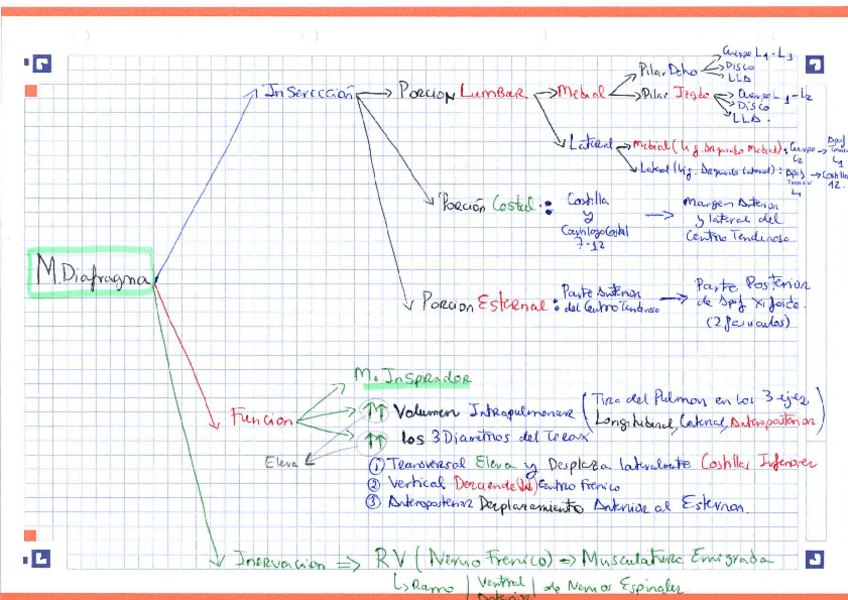 M. Diafragma
Inserección → Porción Lumbar → Medial
Pilar Dcho
Cuerpo L1-L3
Disco
LLA
Pilar Izqdo
Cuerpo L1-L2
Disco
LLA.
Lateral
Medial (Lig. Arqueado Medial): Cuerpo L2 → Apóf L1
Lateral (Lig. Arqueado Lateral): L1 → Costilla 12.
Porción Costal:
Costilla
y
Cartílago Costal
7-12
→ Margen Anterior
y lateral del
Centro Tendinoso.
Porción Esternal:
Parte Anterior
del Centro Tendinoso
→ Parte Posterior
de Apóf Xifoide.
(2 fascículos)
Función
M. Insprador
↑↑ Volumen Intrapulmonar (Tira del Pulmón en los 3 ejes
Longitudinal, Lateral, Anteroposterior)
↑↑ los 3 Diámetros del Torax
Eleva
① Transversal Eleva y Desplaza lateralmente Costillas Inferiores
② Vertical Desciende Centro Frénico
③ Anteroposterior Desplazamiento Anterior al Esternon.
Inervación ⇒ RV (Nervio Frénico) ⇒ Musculatura Emigrada
↳ Ramo | Ventral | de Nervios Espinales
Anterior